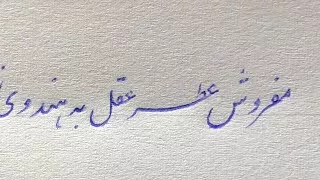 مفروش عطر عقل به هندوی